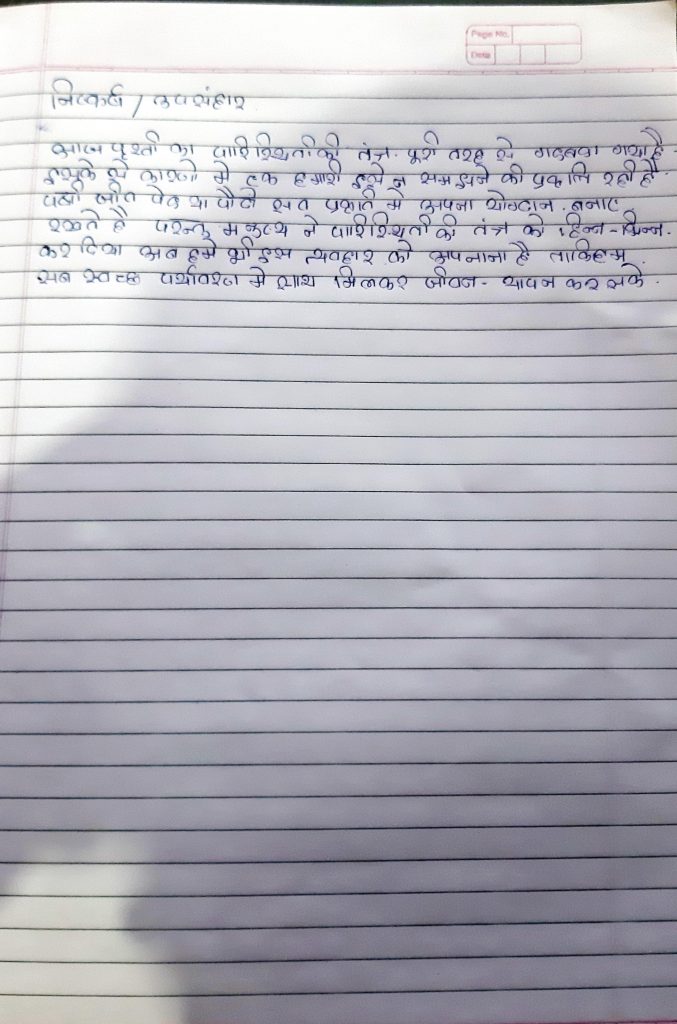 Page No.
Date
निष्कर्ष / उपसंहार
आज पृथ्वी का पारिस्थितीकी तंत्र पूरी तरह से गडबडा गया है
इसके से कारणो में एक हमारी इसे न समझने की प्रकृति रही है
पक्षी जीव पेड या पौधे सब प्रकृति मे अपना योगदान बनाए
रखते है परन्तु मनुष्य ने पारिस्थिती की तंत्र को छिन्न-भिन्न
कर दिया अब हमे भी इस व्यवहार को अपनाना है ताकि हम
सब स्वच्छ पर्यावरण मे साथ मिलकर जीवन-यापन कर सके.